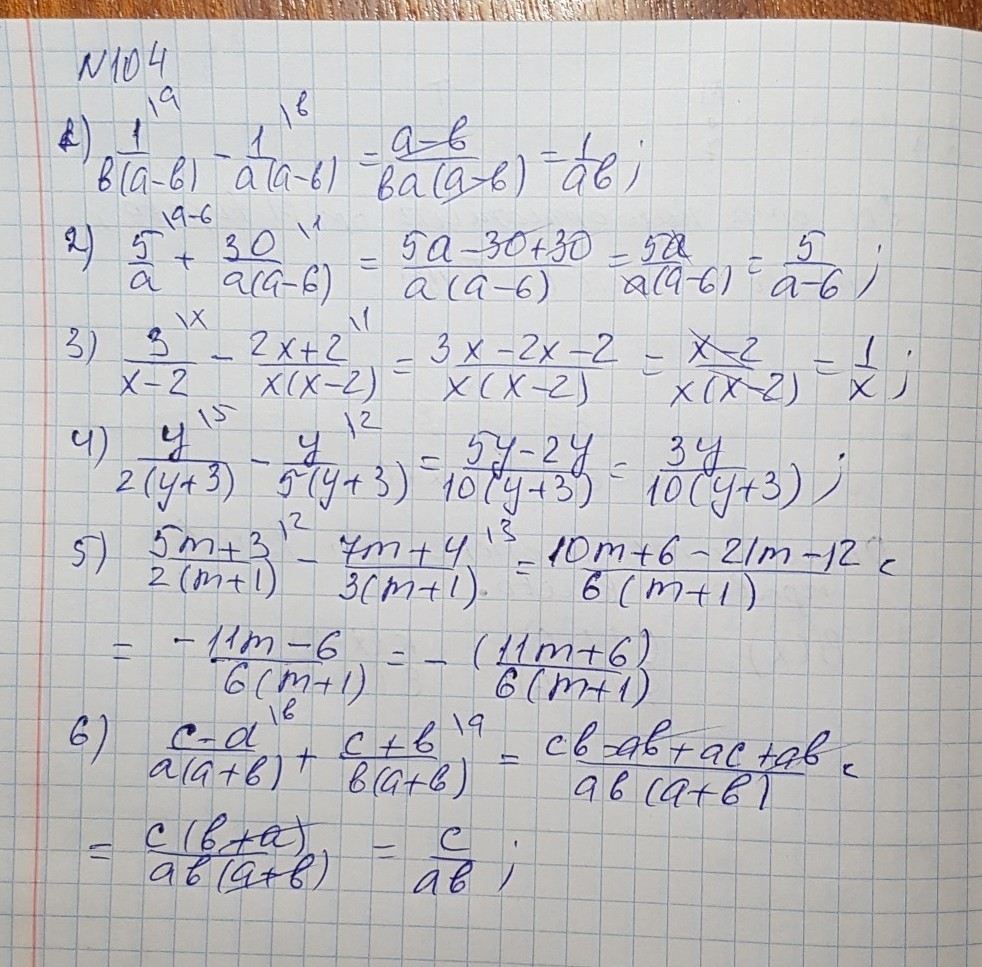 N104
1) 1\a/в(a-в) - 1\в/a(a-в) = a-в/вa(a-в) = 1/aв;
2) 5\a-6/a + 30\1/a(a-6) = 5a-30+30/a(a-6) = 5a/a(a-6) = 5/a-6;
3) 3\x/x-2 - 2x+2\1/x(x-2) = 3x-2x-2/x(x-2) = x-2/x(x-2) = 1/x;
4) y\5/2(y+3) - y\2/5(y+3) = 5y-2y/10(y+3) = 3y/10(y+3);
5) 5m+3\2/2(m+1) - 7m+4\3/3(m+1) = 10m+6-21m-12/6(m+1) =
= -11m-6/6(m+1) = - (11m+6)/6(m+1)
6) c-a\в/a(a+в) + c+в\a/в(a+в) = cв-aв+ac+aв/aв(a+в) =
= c(в+a)/aв(a+в) = c/aв;